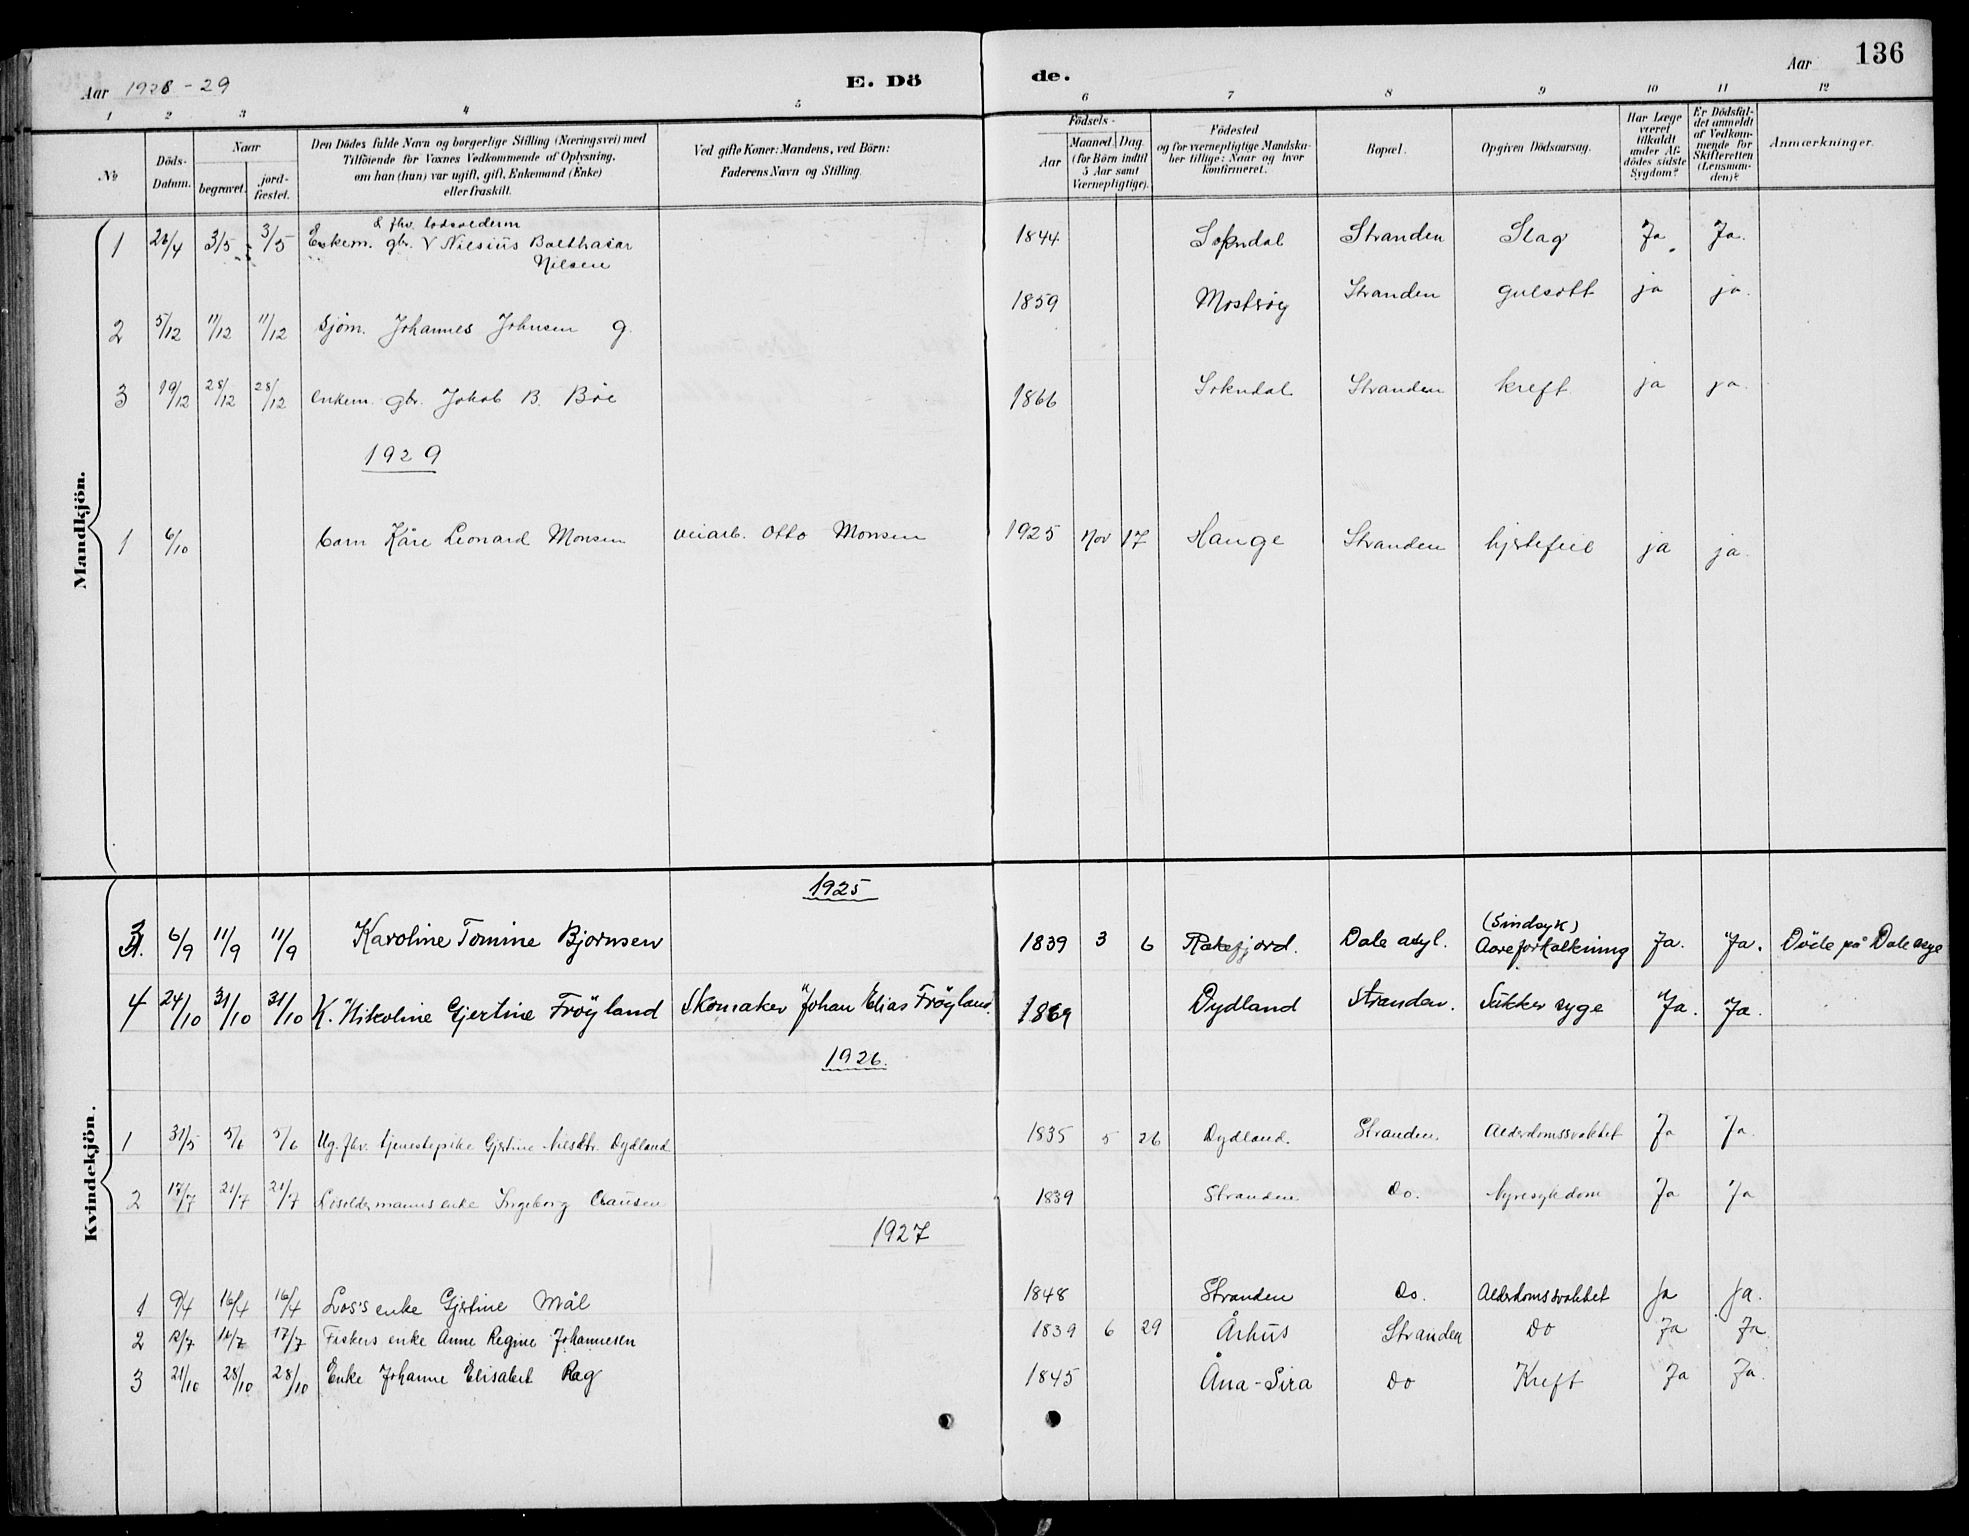 Aar 1928-29 E. Dö de. Aar 136
1 2 3 4 5 6 7 8 9 10 11 12
№ Döds-Datum. Naar begravet. jord-fæstet. Den Dödes fulde Navn og borgerlige Stilling (Næringsvei) med Tilföiende for Voxnes Vedkommende af Oplysning, om han (hun) var ugift, gift, Enkemand (Enke) eller fraskilt. Ved gifte Koner: Mandens, ved Börn: Faderens Navn og Stilling. Födsels- Aar Maaned. Dag. (for Börn indtil 5 Aar samt Værnepligtige). Födested og for værnepligtige Mandskaber tillige: Naar og hvor konfirmeret. Bopæl. Opgiven Dödsaarsag. Har Læge været tilkaldt under Afdödes sidste Sygdom? Er Dödsfaldet anmeldt af Vedkommende for Skifteretten (Lensmanden)? Anmærkninger.
Mandkjön.
& fhv. lodsolderm
1 26/4 3/5 3/5 Enkem. gbr. V Nilsius Balthasar 1844 Sokndal Stranden Slag Ja Ja.
Nilsen
2 5/12 11/12 11/12 Sjøm. Johannes Johnsen g. 1859 Mosterøy Stranden gulsott ja ja.
3 19/12 28/12 28/12 enkem. gbr. Jakob B. Bøe 1866 Sokndal Stranden kreft ja ja.
1929
1 6/10 barn Kåre Leonard Monsen veiarb. Otto Monsen 1925 Nov 17 Hauge Stranden hjertefeil ja ja.
Kvindekjön.
1925
3. 6/9 11/9 11/9 Karoline Tomine Bjornsen 1839 3 6 Rakefjord. Dale asyl. (Sindsyk) Aareforkalkning Ja. Ja. Døde på Dale asyl
4 24/10 31/10 31/10 K. Nikoline Gjertine Fröyland Skomaker Johan Elias Fröyland. 1869 Dydland Stranden. Sukker syge Ja. Ja.
1926.
1 31/5 5/6 5/6 Ug. fhv. tjenestepike Gjertine Nilsdtr. Dydland 1835 5 26 Dydland. Stranden. Alderdomssvakhet Ja Ja.
2 17/7 21/7 21/7 Losoldermanns enke Ingeborg Clausen 1839 Stranden Do. Nyresykdom Ja Ja
1927
1 9/4 16/4 16/4 Los's enke Gjertine Mål 1848 Stranden Do. Alderdomssvakhet Ja Ja.
2 12/7 17/7 17/7 Fiskers enke Anne Regine Johannesen 1839 6 29 Århus Stranden Do Ja Ja.
3 21/10 28/10 28/10 Enke Johanne Elisabet Reg 1845 Åna-Sira Do Kreft Ja Ja.